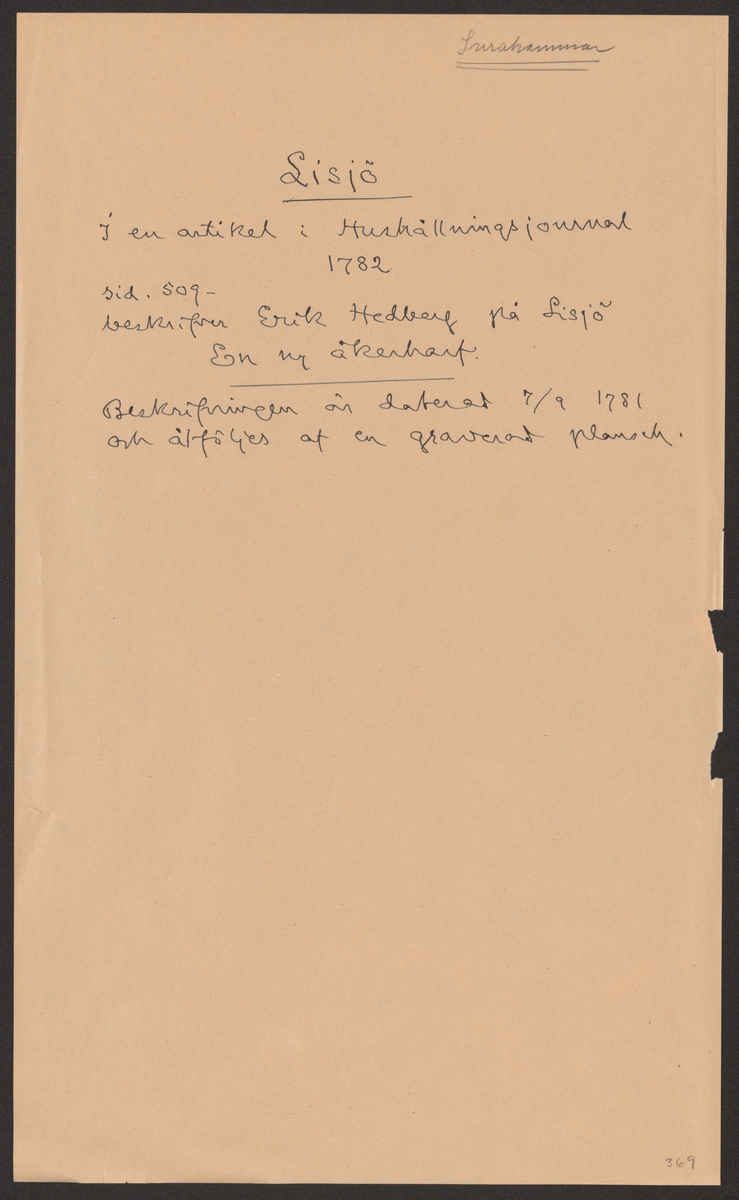 Surahammar
Lisjö
I en artikel i Hushållningsjournal
1782
sid. 509-
beskrifver Erik Hedberg på Lisjö
En ny åkerharf.
Beskrifningen är daterad 7/9 1781
och åtföljes af en graverad plansch.
369